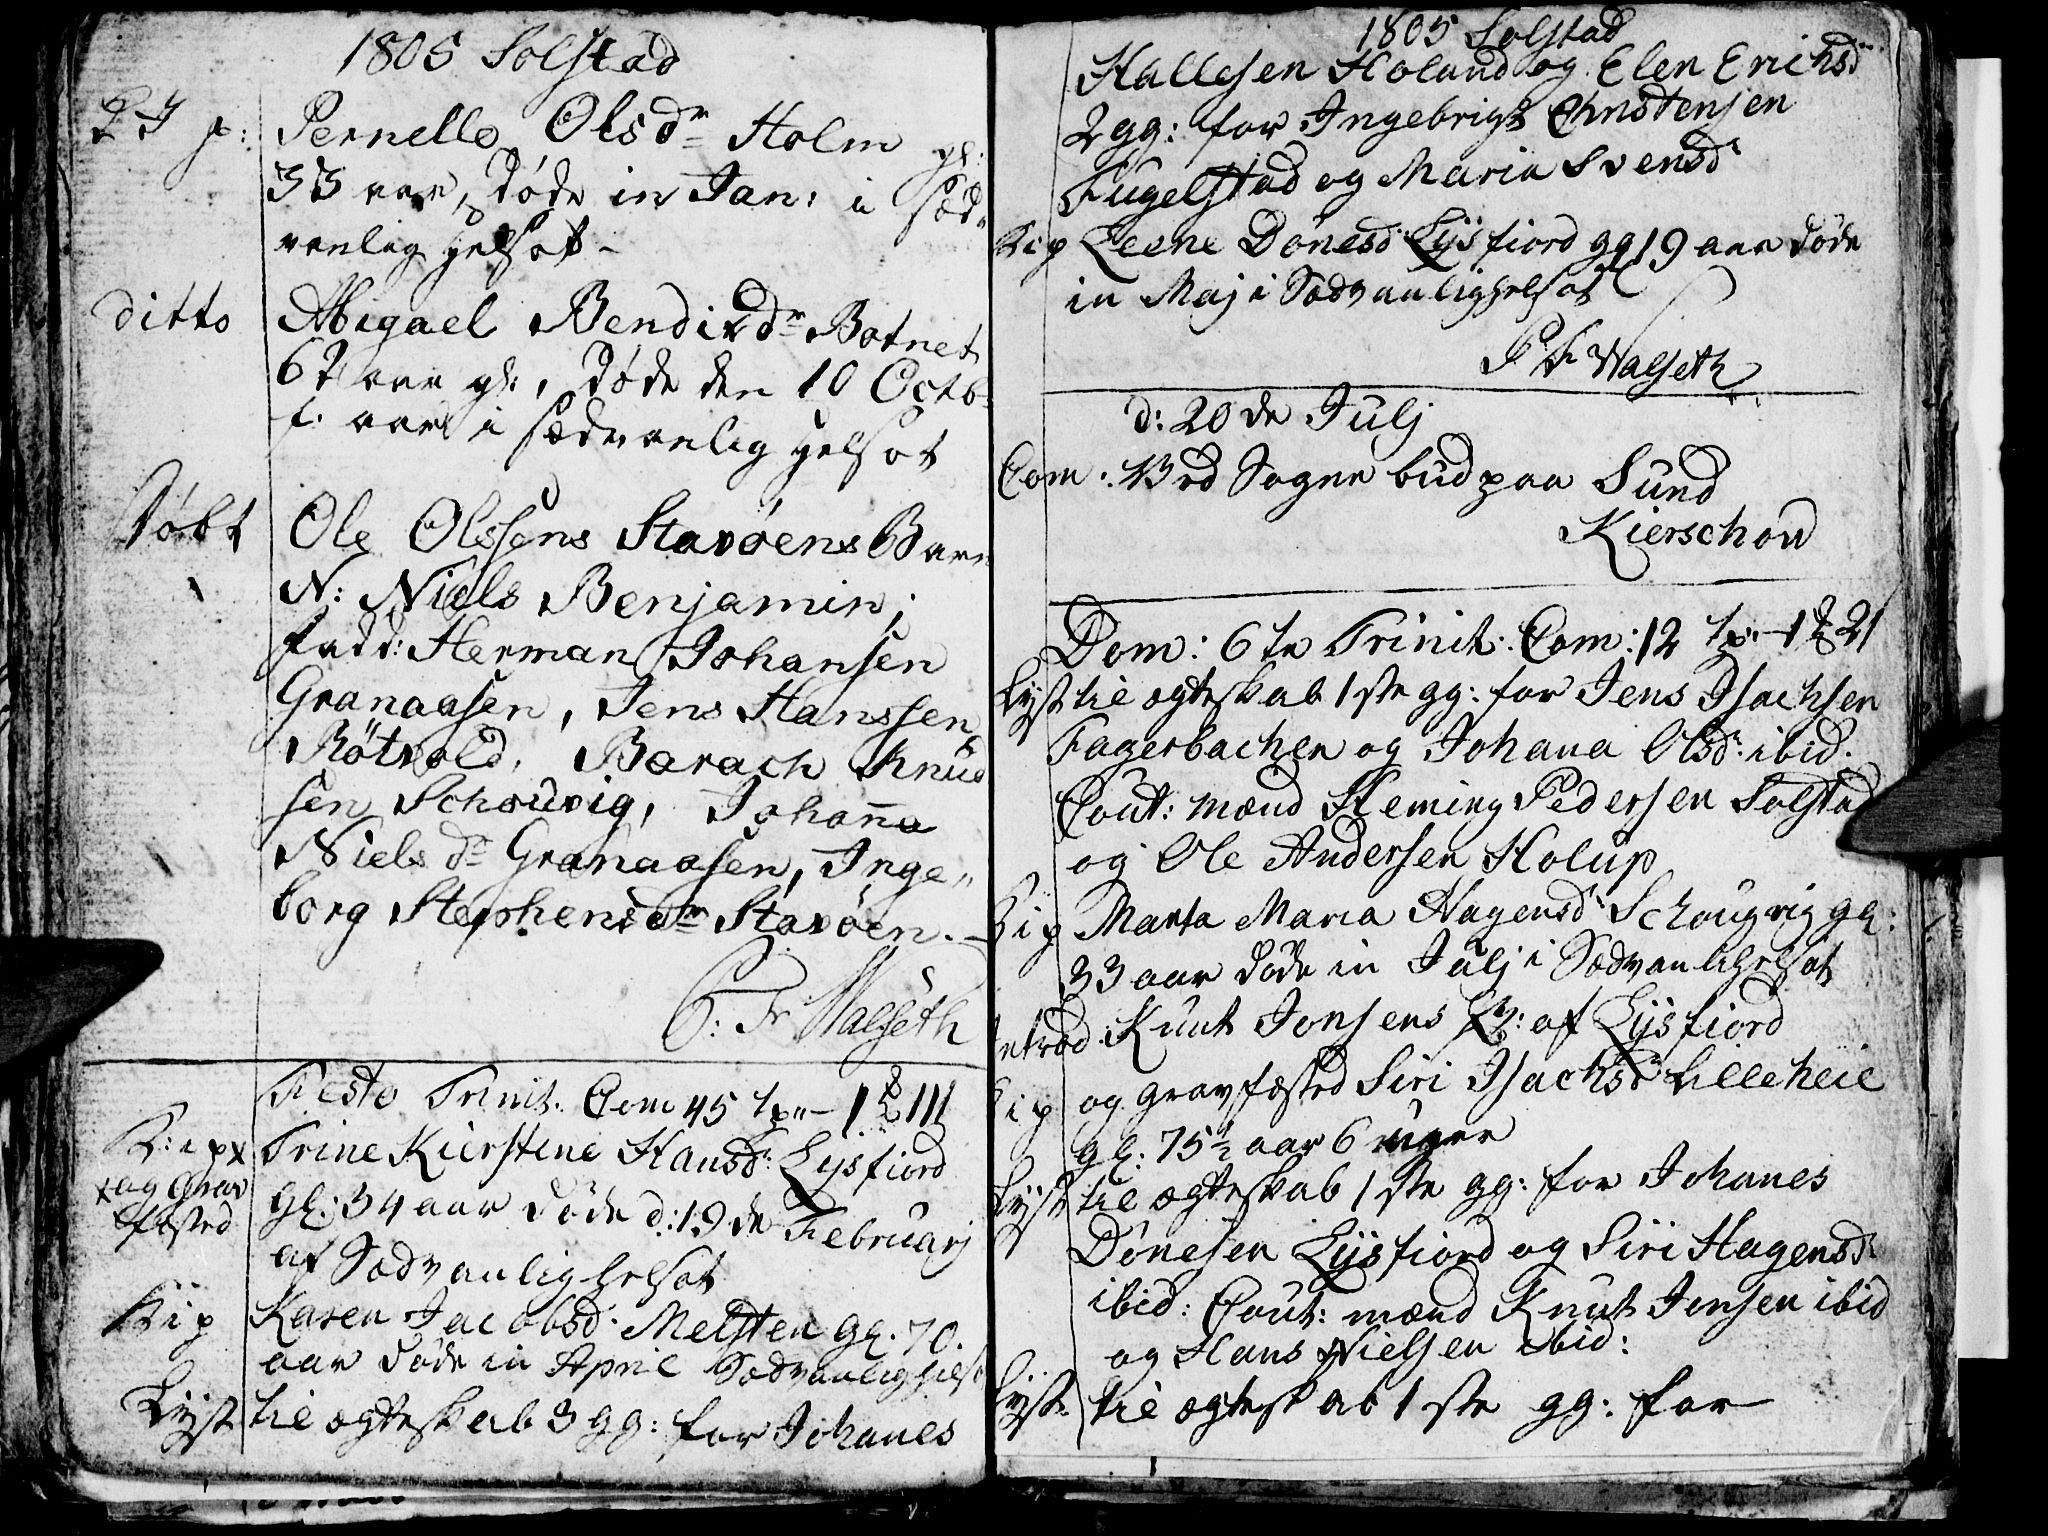 1805 Solstad
Pernelle Olsdr Holm gl:
33 aar, Døde in Jan: i Sæd-
vanlig Helsot -
ditto Abigael Bendixdr Botnet
62 aar gl:, Døde den 10 Octb.
f. aar i sædvanlig Helsot
Døbt Ole Olssens Stavøens Barn
N: Niels Benjamin;
Fadd: Herman Johansen
Granaasen, Jens Hanssen
Røtvold, Barach Knud
sen Schouvig, Johanna
Nielsdr Granaasen, Inge-
borg Stephensdr Stavøen. -
P: Fr Walseth
Festo Trinit. Com 45
K: i p x Trine Kierstine Hansdr: Lysfiord
x og Grav fæsted gl: 34 aar døde d: 19de Februarj
af Sædvanlig helsot
K i p Karen Jacobsd. Melsten gl. 70.
aar døde in April Sædvanlighels
Lyst til ægteskab 3 gg: for Johanes
1805 Solstad
Hallesen Holand og Elen Erichsdr
2 gg: for Ingebrigt Christensen
Fugelstad og Maria Svensdr
K i p Leene Dónesdr Lysfiord gl 19 aar døde
in Maj i Sædvanlighelsot
P F Walseth
d: 20de Julj
Com: ved Sognebud paa Sund
Kierschow
Dom: 6te Trinit: Com: 12
Lyst til ægteskab 1ste gg: for Jens Isachsen
Fagerbachen og Johana Olsdr ibid.
Cout: mænd Fleming Pedersen Solstad
og Ole Andersen Holup
K i p Marta Maria Hagensdr Schougvig gl:
33 aar døde in Julj i Sædvanlighelsot
Introd: Knut Jonsens K: af Lysfiord
K i p og gravfæsted Siri Isachsdr Lilleheie
gl: 75½ aar 6 uger
Lyst til ægteskab 1ste gg: for Johanes
Dónesen Lysfiord og Siri Hagensdr
ibid: Cout: mænd Knut Jonsen ibid
og Hans Nielsen ibid:
Lyst til ægteskab 1ste gg: for